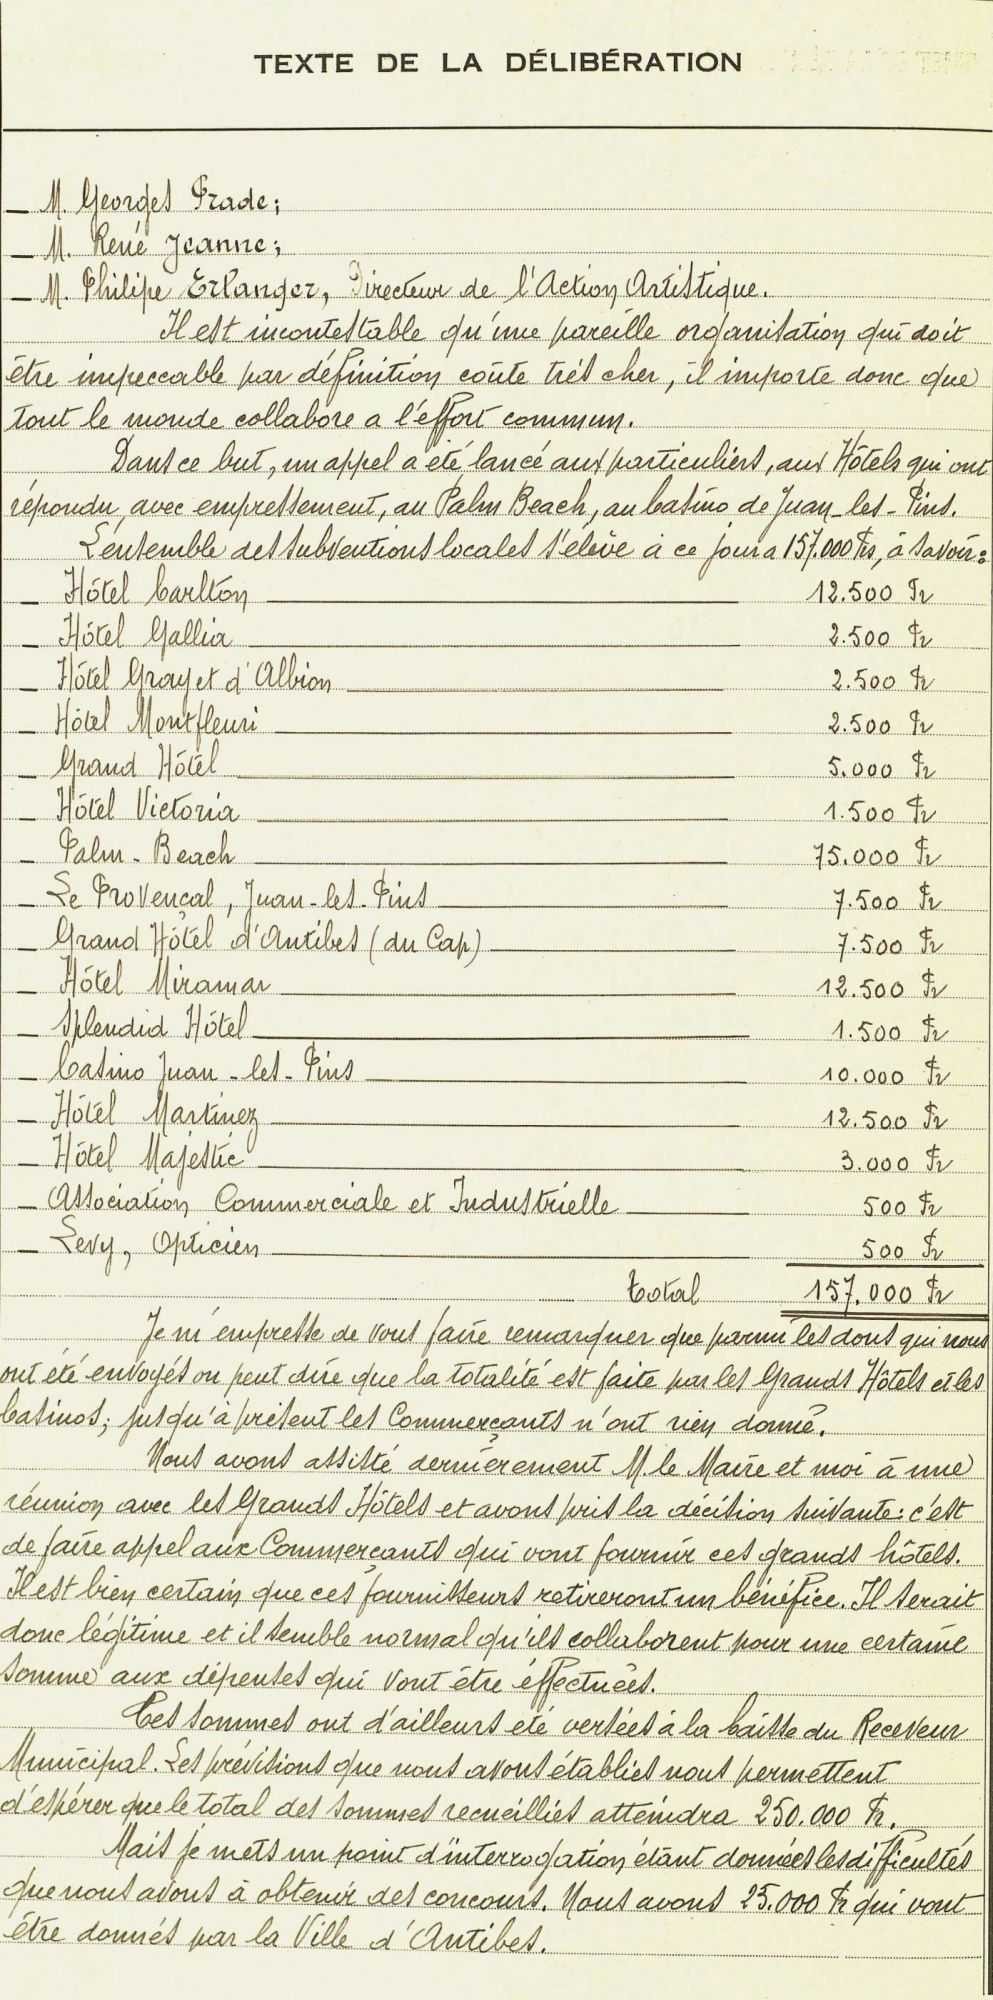 TEXTE DE LA DÉLIBÉRATION
_ M. Georges Prade;
_ M. René Jeanne;
_ M. Philipe Erlanger, Directeur de l'Action Artistique.
Il est incontestable qu'une pareille organisation qui doit
être impeccable par définition coûte très cher, il importe donc que
tout le monde collabore a l'effort commun.
Dans ce but, un appel a été lancé aux particuliers, aux Hôtels qui ont
répondu, avec empressement, au Palm Beach, au Casino de Juan-les-Pins.
L'ensemble des subventions locales s'élève à ce jour a 157.000 Frs, à savoir:
_ Hôtel Carlton 12.500 Fr
_ Hôtel Gallia 2.500 Fr
_ Hôtel Gray et d'Albion 2.500 Fr
_ Hôtel Montfleuri 2.500 Fr
_ Grand Hôtel 5.000 Fr
_ Hôtel Victoria 1.500 Fr
_ Palm-Beach 75.000 Fr
_ Le Provençal, Juan-les-Pins 7.500 Fr
_ Grand Hôtel d'Antibes (du Cap) 7.500 Fr
_ Hôtel Miramar 12.500 Fr
_ Splendid Hôtel 1.500 Fr
_ Casino Juan-les-Pins 10.000 Fr
_ Hôtel Martinez 12.500 Fr
_ Hôtel Majestic 3.000 Fr
_ Association Commerciale et Industrielle 500 Fr
_ Levy, Opticien 500 Fr
total 157.000 Fr
Je m'empresse de vous faire remarquer que parmi les dons qui nous
ont été envoyés on peut dire que la totalité est faite par les Grands Hôtels et les
Casinos; jusqu'à présent les Commerçants n'ont rien donné.
Nous avons assisté dernièrement M. le Maire et moi à une
réunion avec les Grands Hôtels et avons pris la décision suivante: c'est
de faire appel aux Commerçants qui vont fournir ces grands hôtels.
Il est bien certain que ces fournisseurs retireront un bénéfice. Il serait
donc légitime et il semble normal qu'ils collaborent pour une certaine
somme aux dépenses qui vont être éffectuées.
Ces sommes ont d'ailleurs été versées à la Caisse du Receveur
Municipal. Les prévisions que nous avons établies nous permettent
d'espérer que le total des sommes recueillies atteindra 250.000 Fr.
Mais je mets un point d'interrogation étant données les difficultés
que nous avons à obtenir des concours. Nous avons 25.000 Fr qui vont
être donnés par la Ville d'Antibes.